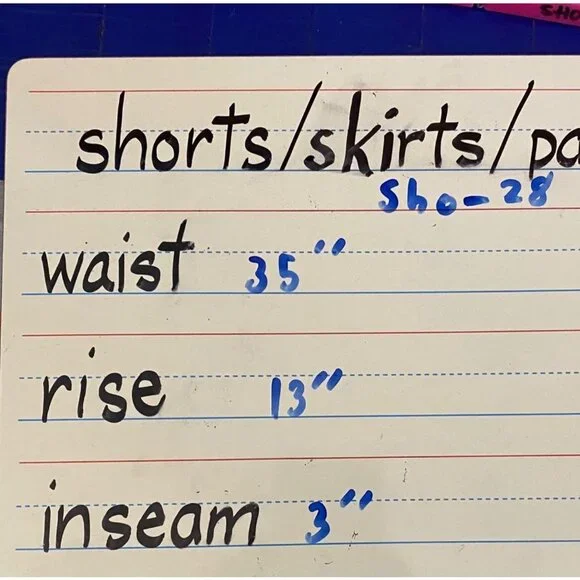 shorts/skirts/pa
Sho-28
waist 35"
rise 13"
inseam 3"